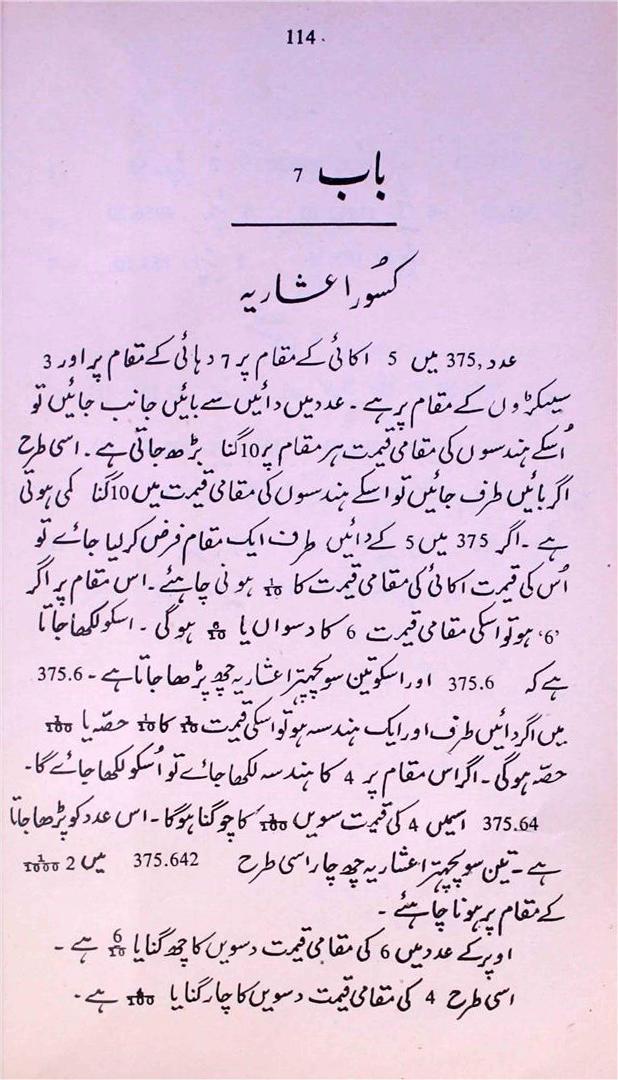 114
باب 7
کسُور اعشاریہ
عدد 375, میں 5 اکائی کے مقام پر 7 دہائی کے مقام پر اور 3
سیکڑوں کے مقام پر ہے۔ عدد میں دائیں سے بائیں جانب جائیں تو
اُسکے ہندسوں کی مقامی قیمت ہر مقام پر 10 گنا بڑھ جاتی ہے۔ اسی طرح
اگر بائیں طرف جائیں تو اسکے ہندسوں کی مقامی قیمت میں 10 گنا کمی ہوتی
ہے۔ اگر 375 میں 5 کے دائیں طرف ایک مقام فرض کر لیا جائے تو
اُس کی قیمت اکائی کی مقامی قیمت کا 1/10 ہونی چاہئیے۔ اس مقام پر اگر
'6' ہو تو اسکی مقامی قیمت 6 کا دسواں یا 6/10 ہوگی۔ اسکو لکھا جاتا
ہے کہ 375.6 اور اسکو تین سو پچھتر اعشاریہ چھ پڑھا جاتا ہے۔ 375.6
میں اگر دائیں طرف اور ایک ہندسہ ہو تو اسکی قیمت 1/10 کا 1/10 حصّہ یا 1/100
حصّہ ہوگی۔ اگر اس مقام پر 4 کا ہندسہ لکھا جائے تو اُسکو لکھا جائے گا۔
375.64 اسمیں 4 کی قیمت سویں 1/100 کا چوگنا ہوگا۔ اس عدد کو پڑھا جاتا
ہے۔ تین سو پچھتر اعشاریہ چھ چار اسی طرح 375.642 میں 2 1/1000
کے مقام پر ہونا چاہئیے۔
اوپر کے عدد میں 6 کی مقامی قیمت دسویں کا چھ گنا یا 6/10 ہے۔
اسی طرح 4 کی مقامی قیمت دسویں کا چار گنا یا 4/100 ہے۔